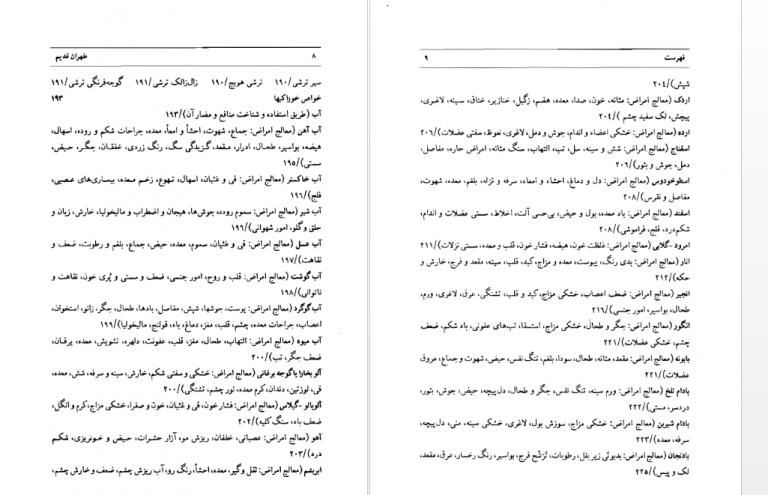 ۸ طهران قدیم
سیر ترشی/۱۹۰ ترشی هویج/۱۹۰ زال‌زالک ترشی/۱۹۱ گوجه‌فرنگی ترشی/۱۹۱
خواص خوراکیها ۱۹۳
آب (طریق استفاده و شناخت منافع و مضار آن)/۱۹۳
آب آهن (معالج امراض: جماع، شهوت، احشأ و امعأ، معده، جراحات شکم و روده، اسهال،
هیضه، بواسیر، طحال، ادرار، مقعد، گزیدگی سگ، رنگ زردی، خفقان، جگر، حیض،
سستی)/۱۹۵
آب خاکستر (معالج امراض: قی و غثیان، اسهال، تهوع، زخم معده، بیماری‌های عصبی،
فلج)/۱۹۶
آب شور (معالج امراض: سموم روده، جوش‌ها، هیجان و اضطراب و مالیخولیا، خارش، زبان و
حلق وگلو، امور شهوانی)/۱۹۶
آب عسل (معالج امراض: قی و غثیان، سموم، معده، حیض، جماع، بلغم و رطوبت، ضعف و
نقاهت)/۱۹۷
آب گوشت (معالج امراض: قلب و روح، امور جنسی، ضعف و سستی و پُری خون، نقاهت و
ناتوانی)/۱۹۸
آب گوگرد (معالج امراض: پوست، جوشها، شپش، مفاصل، بادها، طحال، جگر، زانو، استخوان،
اعصاب، جراحات معده، چشم، قلب، مغز، دماغ، باه، قولنج، مالیخولیا)/۱۹۹
آب میوه (معالج امراض: التهاب، طحال، مغز، قلب، عفونت، دلهره، تشویش، معده، یرقان،
ضعف جگر، تب)/۲۰۰
آلو بخارا یاگوجه برغانی (معالج امراض: خشکی و سفتی شکم، خارش، سینه و سرفه، شش، معده،
قی، لوزتین، دندان، کرم معده، نور چشم، تشنگی)/۲۰۰
آلوبالو -گیلاس (معالج امراض: فشار خون، قی و غثیان، خون و صفرا، خشکی مزاج، کرم و انگل،
ضعف باه، سنگ کلیه)/۲۰۲
آهو (معالج امراض: عصبانی، خفقان، ریزش مو، آزار حشرات، حیض و خونریزی، شکم
درد)/۲۰۳
ابریشم (معالج امراض: ثقل وگیر، معده، احشأ، رنگ رو، آب ریزش چشم، ضعف و خارش چشم،
فهرست ۹
شپش)/۲۰۴
اردک (معالج امراض: مثانه، خون، صدا، معده، هضم، زگیل، خنازیر، خناق، سینه، لاغری،
پیچش، لک سفید چشم )/۲۰۴
ارده (معالج امراض: خشکی اعضاء و اندام، جوش و دمل، لاغری، نعوظ، سفتی عضلات)/۲۰۶
اسفناج (معالج امراض: شش و سینه، سل، تب، التهاب، سنگ مثانه، امراض حاره، مفاصل،
دمل، جوش و بثور)/۲۰۶
اسطوخودوس (معالج امراض: دل و دماغ، احشاء و امعاء، سرفه و نزله، بلغم، معده، شهوت،
مفاصل و نقرس)/۲۰۸
اسفند (معالج امراض: باد معده، بول و حیض، بی‌حسی آلت، اخلاط، سستی عضلات و اندام،
شکم‌درد، فلج، فراموشی)/۲۰۸
امرود -گلابی (معالج امراض: غلظت خون، هیضه، فشار خون، قلب و معده، سستی نزلات)/۲۱۱
انار (معالج امراض: بدی رنگ، یبوست، معده و مزاج، کبد، قلب، سینه، مقعد و فرج، خارش و
حکه)/۲۱۲
انجیر (معالج امراض: ضعف اعصاب، خشکی مزاج، کبد و قلب، تشنگی، عرق، لاغری، ورم،
طحال، بواسیر، امور جنسی)/۲۱۶
انگور (معالج امراض: جگر و طحال، خشکی مزاج، استسقا، تب‌های عفونی، باد شکم، ضعف
چشم، خشکی عضلات)/۲۲۱
بابونه (معالج امراض: مقعد، مثانه، طحال، سودا، بلغم، تنگ نفس، حیض، شهوت و جماع، عروق
عضلات)/۲۲۱
بادام تلخ (معالج امراض: ورم سینه، تنگ نفس، جگر و طحال، دل‌پیچه، حیض، جوش، بثور،
دردسر، مستی)/۲۲۲
بادام شیرین (معالج امراض: خشکی مزاج، سوزش بول، لاغری، خشکی سینه، منی، دل‌پیچه،
سرفه، معده)/۲۲۳
بادنجان (معالج امراض: بدبوئی زیر بغل، رطوبات، تَرَشُّح فرج، بواسیر، رنگ رخسار، عرق، مقعد،
لک و پیس)/۲۲۵